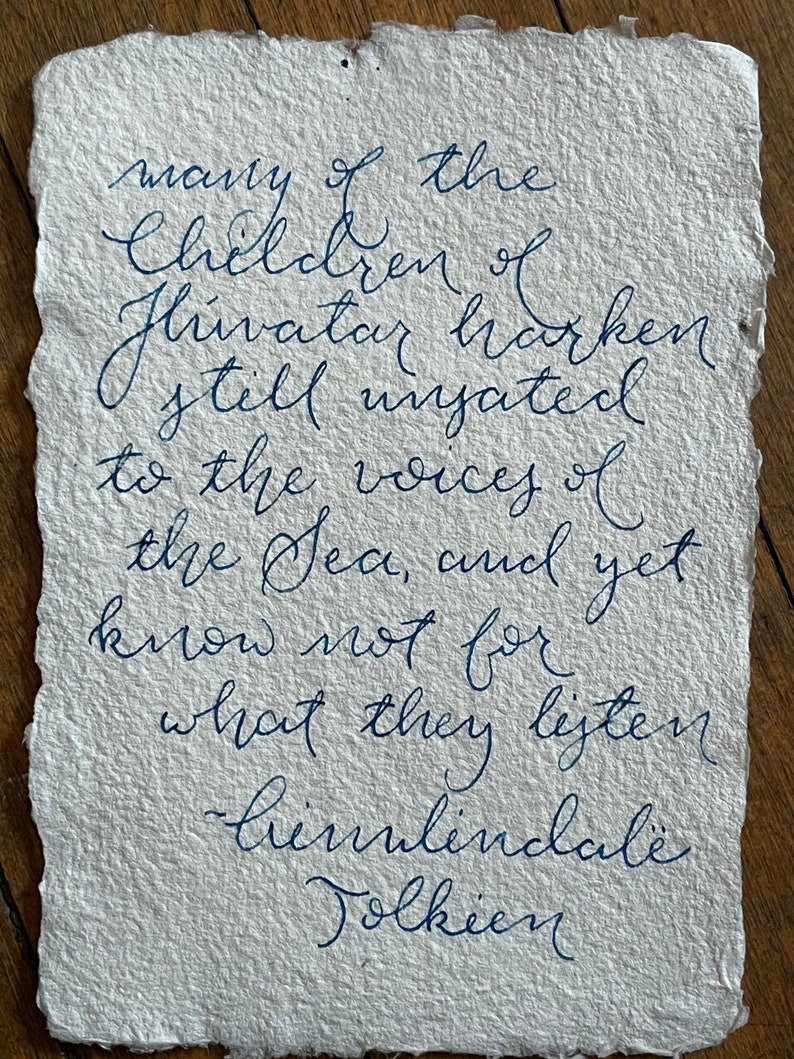 many of the
Children of
Ilúvatar harken
still unsated
to the voices of
the Sea, and yet
know not for
what they listen
~Ainulindalë
Tolkien